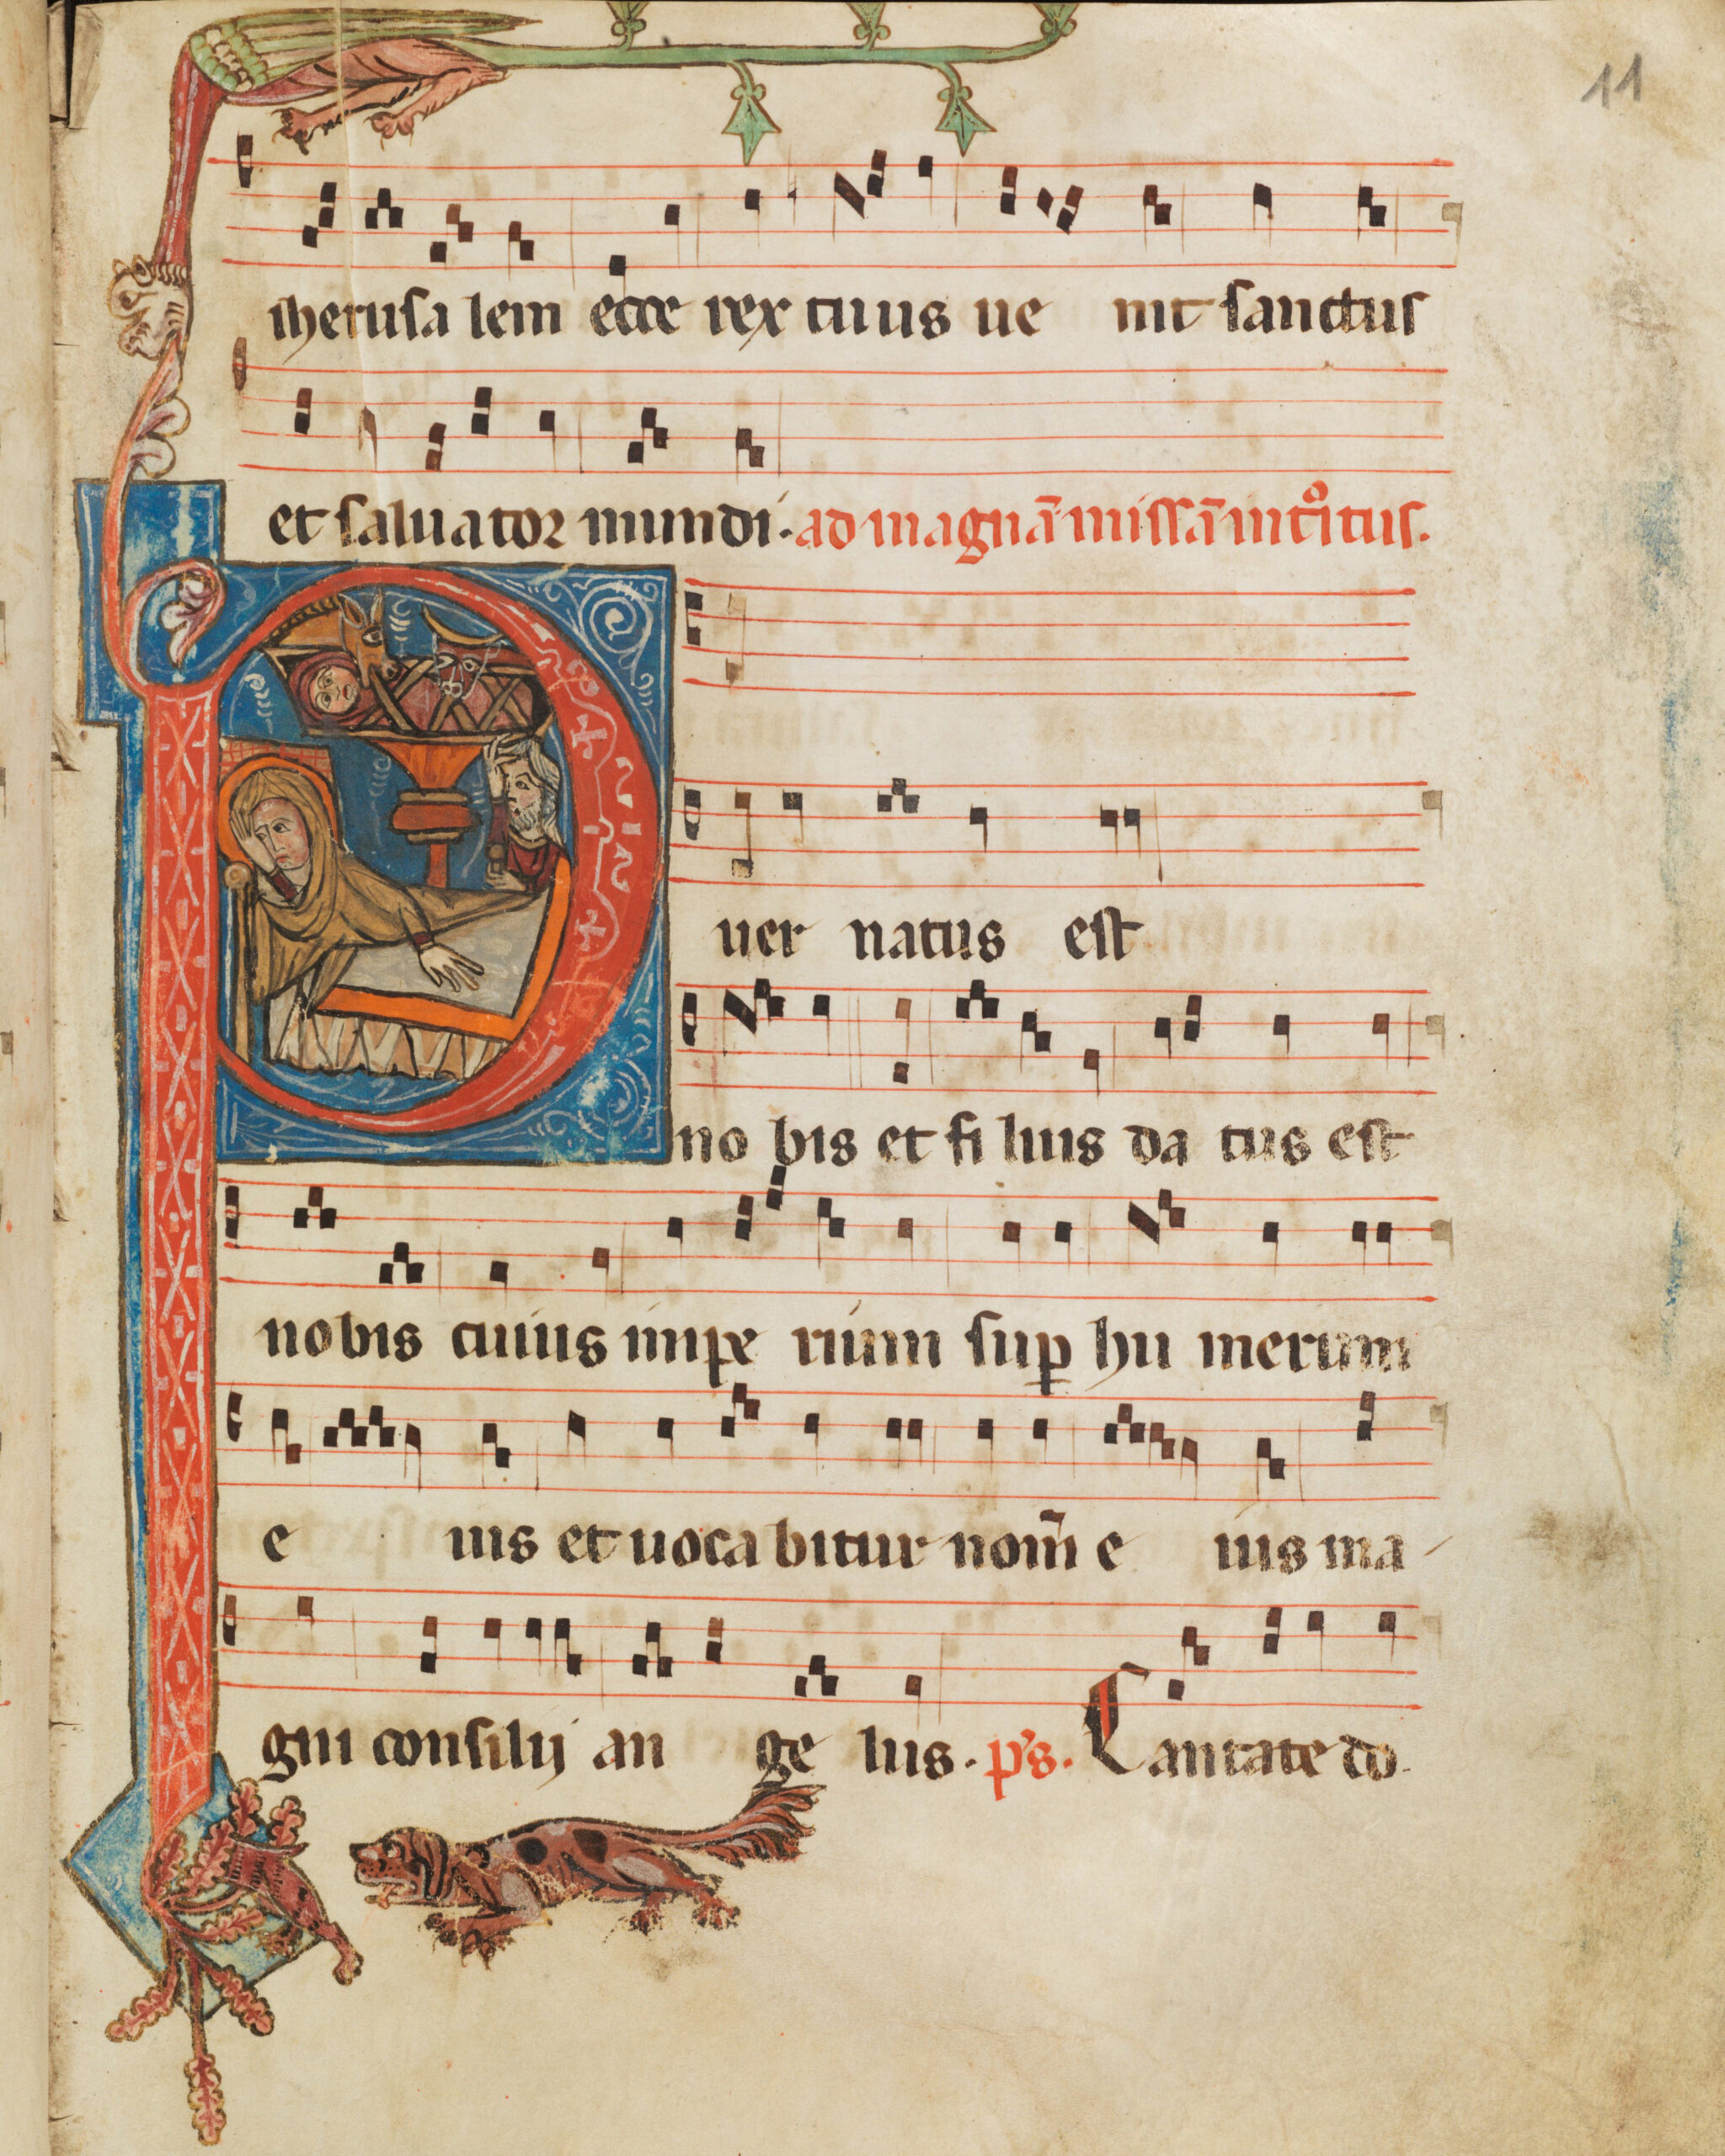 11
iherusalem ecce rex tuus uenit sanctus
et saluator mundi. ad magnā missā introitus.
P
uer natus est
nobis et filius datus est
nobis cuius imperium sup humerum
eius et uocabitur nom̄ eius ma-
gni consilij angelus. p̄s. Cantate do-